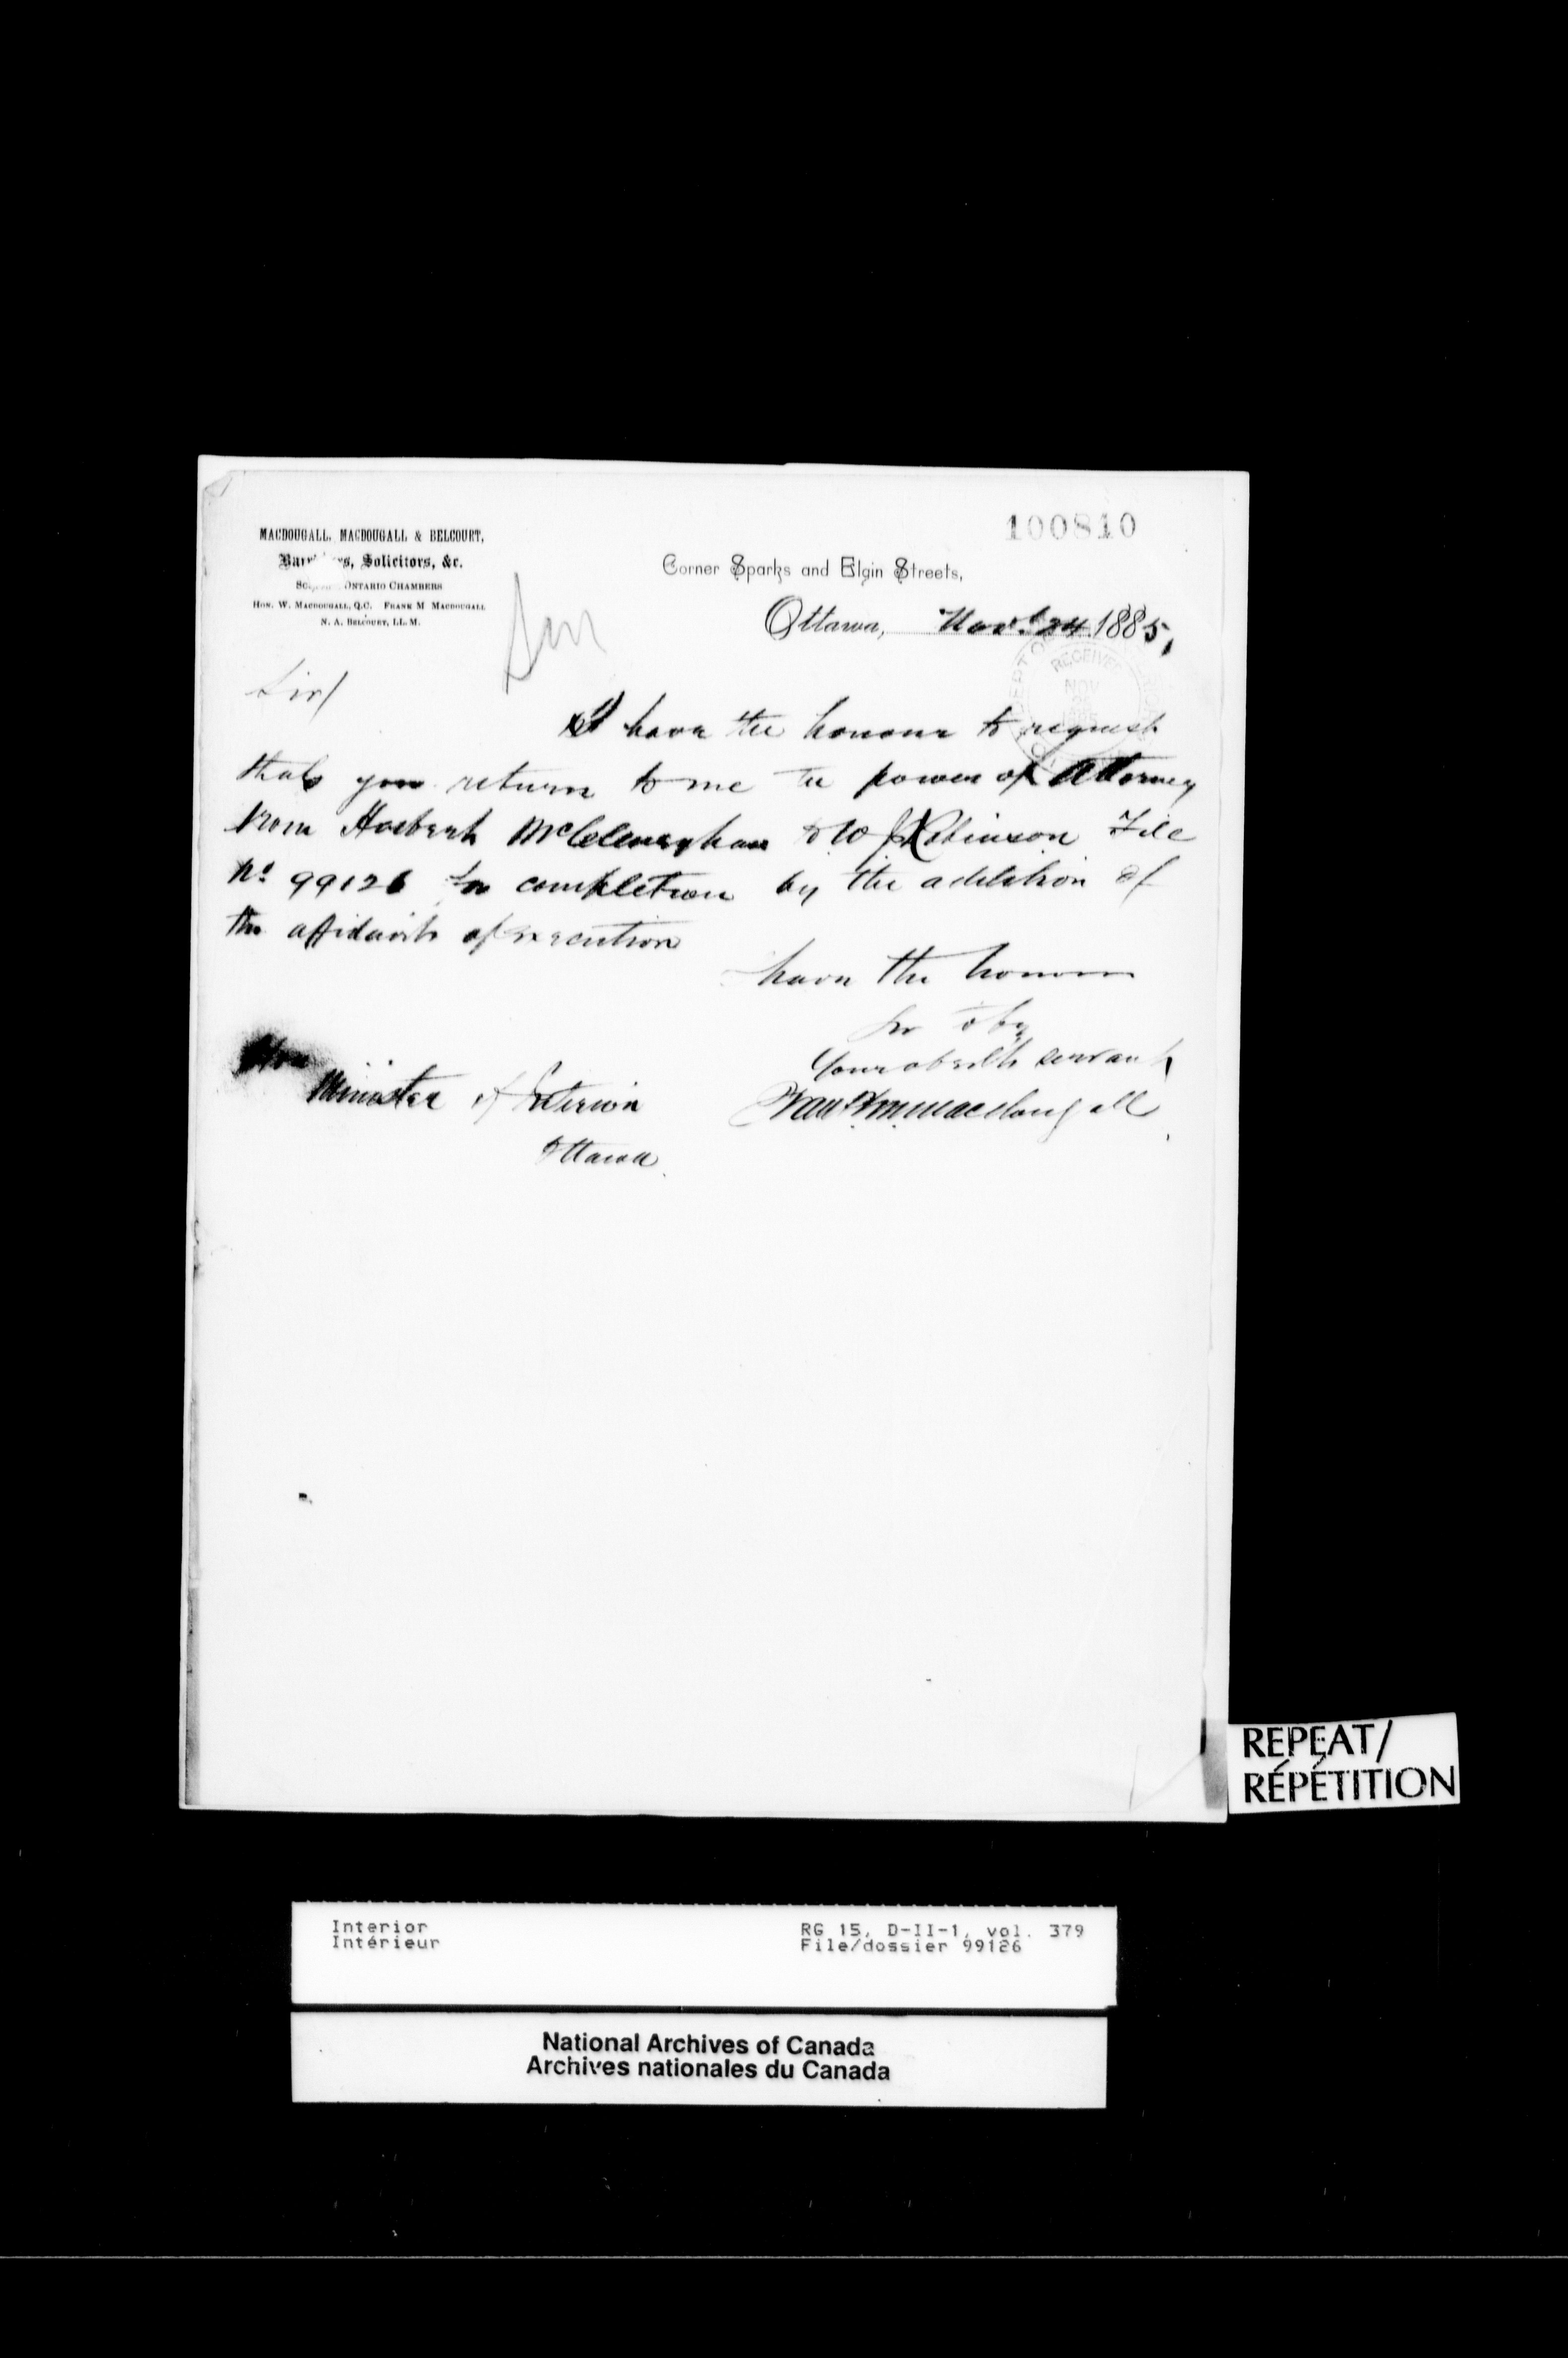 100810
MACDOUGALL, MACDOUGALL & BELCOURT,
Solicitors, &c.
ONTARIO CHAMBERS
HON. W. MACDOUGALL, Q.C. FRANK M MACDOUGALL
N. A. BELCOURT, LL.M.
Corner Sparks and Elgin Streets,
Ottawa, Nov. 24 1885,
RECEIVED
NOV
1885
Sir/
I have the honour to request
that you return to me the power of Attorney
from Herbert McClenaghan to W J Robinson File
No 99126 for completion by the addition of
the affidavit of execution
have the honour
Sir to be
Your obedt servant
Frank M Macdougall
Hon
Minister of Interior
Ottawa
REPEAT/
RÉPÉTITION
Interior RG 15, D-II-1, vol. 379
Intérieur File/dossier 99126
National Archives of Canada
Archives nationales du Canada